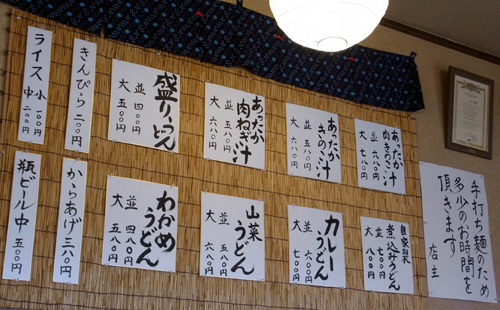 手打ち麺のため
多少のお時間を
頂きます
店主
あったか
肉きのこ汁
並 六八〇円
大 七八〇円
あったか
きのこ汁
並 五八〇円
大 六八〇円
あったか
肉ねぎ汁
並 五八〇円
大 六八〇円
盛りうどん
並 四〇〇円
大 五〇〇円
きんぴら 二〇〇円
ライス
小 一〇〇円
中 二〇〇円
自家製
煮込みうどん
並 七〇〇円
大 八〇〇円
カレー
うどん
並 六〇〇円
大 七〇〇円
山菜
うどん
並 五八〇円
大 六八〇円
わかめ
うどん
並 四八〇円
大 五八〇円
からあげ 三八〇円
瓶ビール 中 五〇〇円